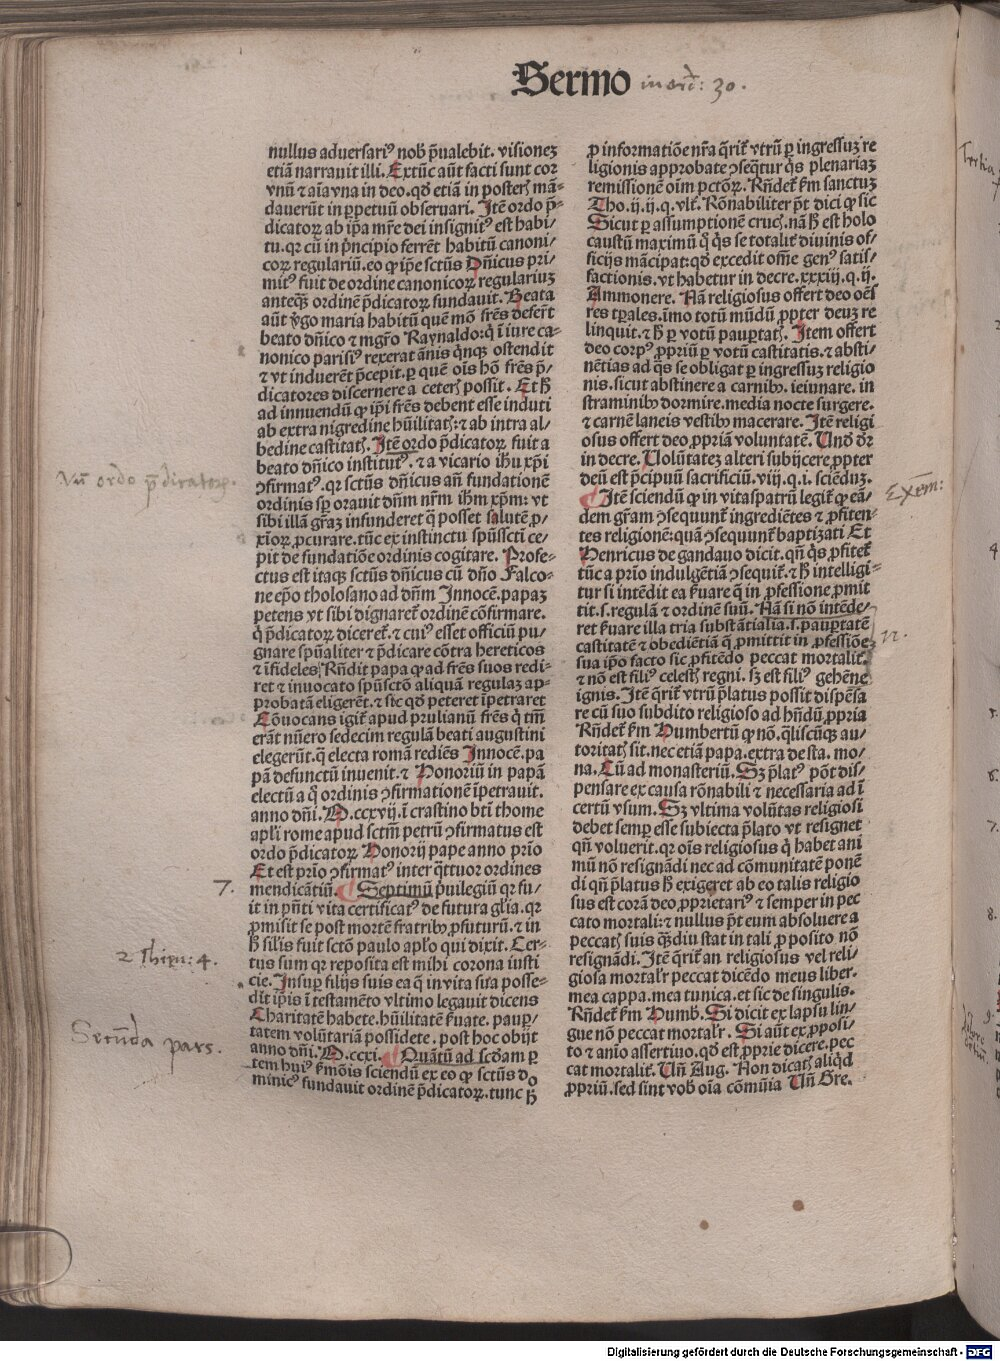 Sermo in ord: 30.
nullus adversariꝰ nob̄ p̄ualebit. visionez
etiā narrauit illi. Extūc aūt facti sunt cor
vnū ⁊ aīa vna in deo. qd̄ etiā in posterꝭ mā⸗
dauerūt in ꝑpetuū obseruari. Itē ordo p̄⸗
dicatorꝝ ab ip̄a mr̄e dei insignitꝰ est habi/
tu. qꝛ cū in pͥncipio ferrēt habitū canoni/
corꝝ regulariū. eo ꝙ ip̄e sctūs Dn̄icus pri/
mitꝰ fuit de ordine canonicorꝝ regulariuꝫ
anteqꝫ ordinē p̄dicatorꝝ fundauit. Beata
aūt v̄go maria habitū quē mō fr̄es deferūt
beato dn̄ico ⁊ mgr̄o Raynaldo: qͥ ī iure ca⸗
nonico parisiꝰ rexerat ānis qͥnqꝫ ostendit
⁊ vt induerēt p̄cepit. ꝑ quē oīs hō fr̄es p̄/
dicatores discernere a ceterꝭ possit. Et h̄
ad innuendū ꝙ ip̄i fr̄es debent esse induti
ab extra nigredine hūilitatꝭ: ⁊ ab intra al/
bedine castitatꝭ. Itē ordo p̄dicatorꝝ fuit a
beato dn̄ico institutꝰ. ⁊ a vicario ih̄u xp̄i
ↄfirmatꝰ. qꝛ sctūs dn̄icus an̄ fundationē
ordinis sp̄ orauit dn̄m nr̄m ih̄m xp̄m: vt
sibi illā gr̄aꝫ infunderet q̄ posset salutē ꝓ/
xīorꝝ ꝓcurare. tūc ex instinctu spūssctī ce/
pit de fundatiōe ordinis cogitare. Profe⸗
ctus est itaqꝫ sctūs dn̄icus cū dn̄o Falco⸗
ne ep̄o tholosano ad dn̄m Innocē. papaꝫ
petens vt sibi dignaretꝭ ordinē cōfirmare.
qͥ p̄dicatorꝝ diceretꝭ. ⁊ cuiꝰ esset officiū pu/
gnare spūaliter ⁊ p̄dicare cōtra hereticos
⁊ īfideles Rn̄dit papa ꝙ ad fr̄es suos redi/
ret ⁊ inuocato spūsctō aliquā regulaꝫ ap/
probatā eligerēt. ⁊ sic qd̄ peteret īpetraret
Cōuocans igitꝭ apud prulianū fr̄es qͥ tm̄
erāt nūero sedecim regulā beati augustini
elegerūt. q̄ electa romā rediēs Innocē. pa
pā defunctū inuenit. ⁊ Honoriū in papā
electū a qͦ ordinis ↄfirmationē īpetrauit.
anno dn̄i. M.ccxvij. ī crastino bt̄i thome
apl̄i rome apud sctm̄ petrū ↄfirmatus est
ordo p̄dicatorꝝ Honorij pape anno pͥmo
Et est prīo ↄfirmatꝰ inter qͣttuor ordines
mendicātiū. ¶ Septimū pͥuilegiū qꝛ fu/
it in p̄nti vita certificatꝰ de futura gl̄ia. qꝛ
ꝓmisit se post mortē fratribꝰ ꝓfuturū. ⁊ in
h̄ silis fuit sctō paulo apl̄o qui dixit. Cer⸗
tus sum qꝛ reposita est mihi corona iusti
cie. Insuꝑ filijs suis ea q̄ in vita sua posse⸗
dit ip̄is ī testamēto vltimo legauit dicens
Charitatē habete. hūilitatē ẜuate. pauꝑ/
tatem volūtariā possidete. post hoc obijt
anno dn̄i. M.ccxxi. ¶ Quātū ad scd̄am ꝑ
tem huiꝰ ẜmōis sciendū ex eo ꝙ sctūs do
minicꝰ fundauit ordinē p̄dicatorꝝ. tunc
ꝓ informatiōe nr̄a qͥritꝭ vtrū ꝑ ingressuꝫ re
ligionis approbate ↄseqͣtur qͥs plenariaꝫ
remissionē oīm pctōrꝝ. Rn̄detꝭ ẜm sanctuꝫ
Tho. ij. ij. q. vlt. Rōnabiliter pōt dici ꝙ sic
Sicut ꝑ assumptionē crucꝭ. nā h̄ est holo
caustū maximū qͦ qͥs se totalitꝭ diuinis of/
ficijs mācipat: qd̄ excedit oīne genꝰ satis/
factionis. vt habetur in decre. xxxiij. q. ij.
Ammonere. Nā religiosus offert deo oēs
res tꝑales. īmo totū mūdū ꝓpter deuꝫ re
linquit. ⁊ h̄ ꝑ votū pauꝑtatꝭ. Item offert
deo corpꝰ ꝓpriū ꝑ votū castitatis. ⁊ absti/
nētias ad qͣs se obligat ꝑ ingressuꝫ religio
nis. sicut abstinere a carnibꝰ. ieiunare. in
straminibꝰ dormire. media nocte surgere.
⁊ carnē laneis vestibꝰ macerare. Itē religi
osus offert deo ꝓpriā voluntatē. Und̄ dr̄
in decre. Volūtateꝫ alteri subijcere ꝓpter
deū est p̄cipuū sacrificiū. viij. q. i. sciēduꝫ.
¶ Itē sciendū ꝙ in vitaspatrū legitꝭ ꝙ eā/
dem gr̄am ↄsequunt ingrediētes ⁊ ꝓfiten⸗
tes religionē: quā ↄsequunt baptizati Et
Henricus de gandauo dicit. qn̄ qͥs ꝓfitetꝭ
tūc a prīo indulgētiā ↄsequitꝭ. ⁊ h̄ intelligi⸗
tur si intēdit ea ẜuare q̄ in ꝓfessione ꝓmit
tit. s. regulā ⁊ ordinē suū. Nā si nō intēde⸗
ret ẜuare illa tria substātialia. s. pauꝑtatē
castitatē ⁊ obediētiā q̄ ꝓmittit in ꝓfessiōe
sua ip̄o facto sic ꝓfitēdo peccat mortalitꝭ.
⁊ nō est filiꝰ celestꝭ regni. sꝫ est filiꝰ gehēne
ignis. Itē qͥritꝭ vtrū p̄latus possit dispēsa
re cū suo subdito religioso ad hn̄dū ꝓpria
Rn̄detꝭ ẜm Humbertū ꝙ nō. qͣliscūqꝫ au/
toritatꝭ sit. nec etiā papa. extra de sta. mo/
na. Cū ad monasteriū. Sꝫ p̄latꝰ pōt dis/
pensare ex causa rōnabili ⁊ necessaria ad ī
certū vsum. Sꝫ vltima volūtas religiosi
debet semꝑ esse subiecta p̄lato vt resignet
qn̄ voluerit. qꝛ oīs religiosus qͥ habet ani
mū nō resignādi nec ad cōmunitatē ponē
di qn̄ p̄latus h̄ exigeret ab eo talis religio
sus est corā deo ꝓprietariꝰ ⁊ semper in pec
cato mortali: ⁊ nullus pōt eum absoluere a
peccatꝭ suis qͣꝫdiu stat in tali ꝓposito nō
resignādi. Itē qͥritꝭ an religiosus vel reli/
giosa mortalr̄ peccat dicēdo meus liber.
mea cappa. mea tunica. et sic de singulis.
Rn̄detꝭ ẜm Humb. Si dicit ex lapsu lin/
gue nō peccat mortalr̄. Si aūt ex ꝓposi/
to ⁊ anīo assertiuo. qd̄ est ꝓprie dicere. pec
cat mortalitꝭ. Un̄ Aug. Non dicatꝭ aliqͥd
ꝓpriū. sed sint vob̄ oīa cōmunia Un̄ Gre.
ordo p̄dicatorꝝ.
7.
2 Thim: 4.
Secūda pars.
Exem: